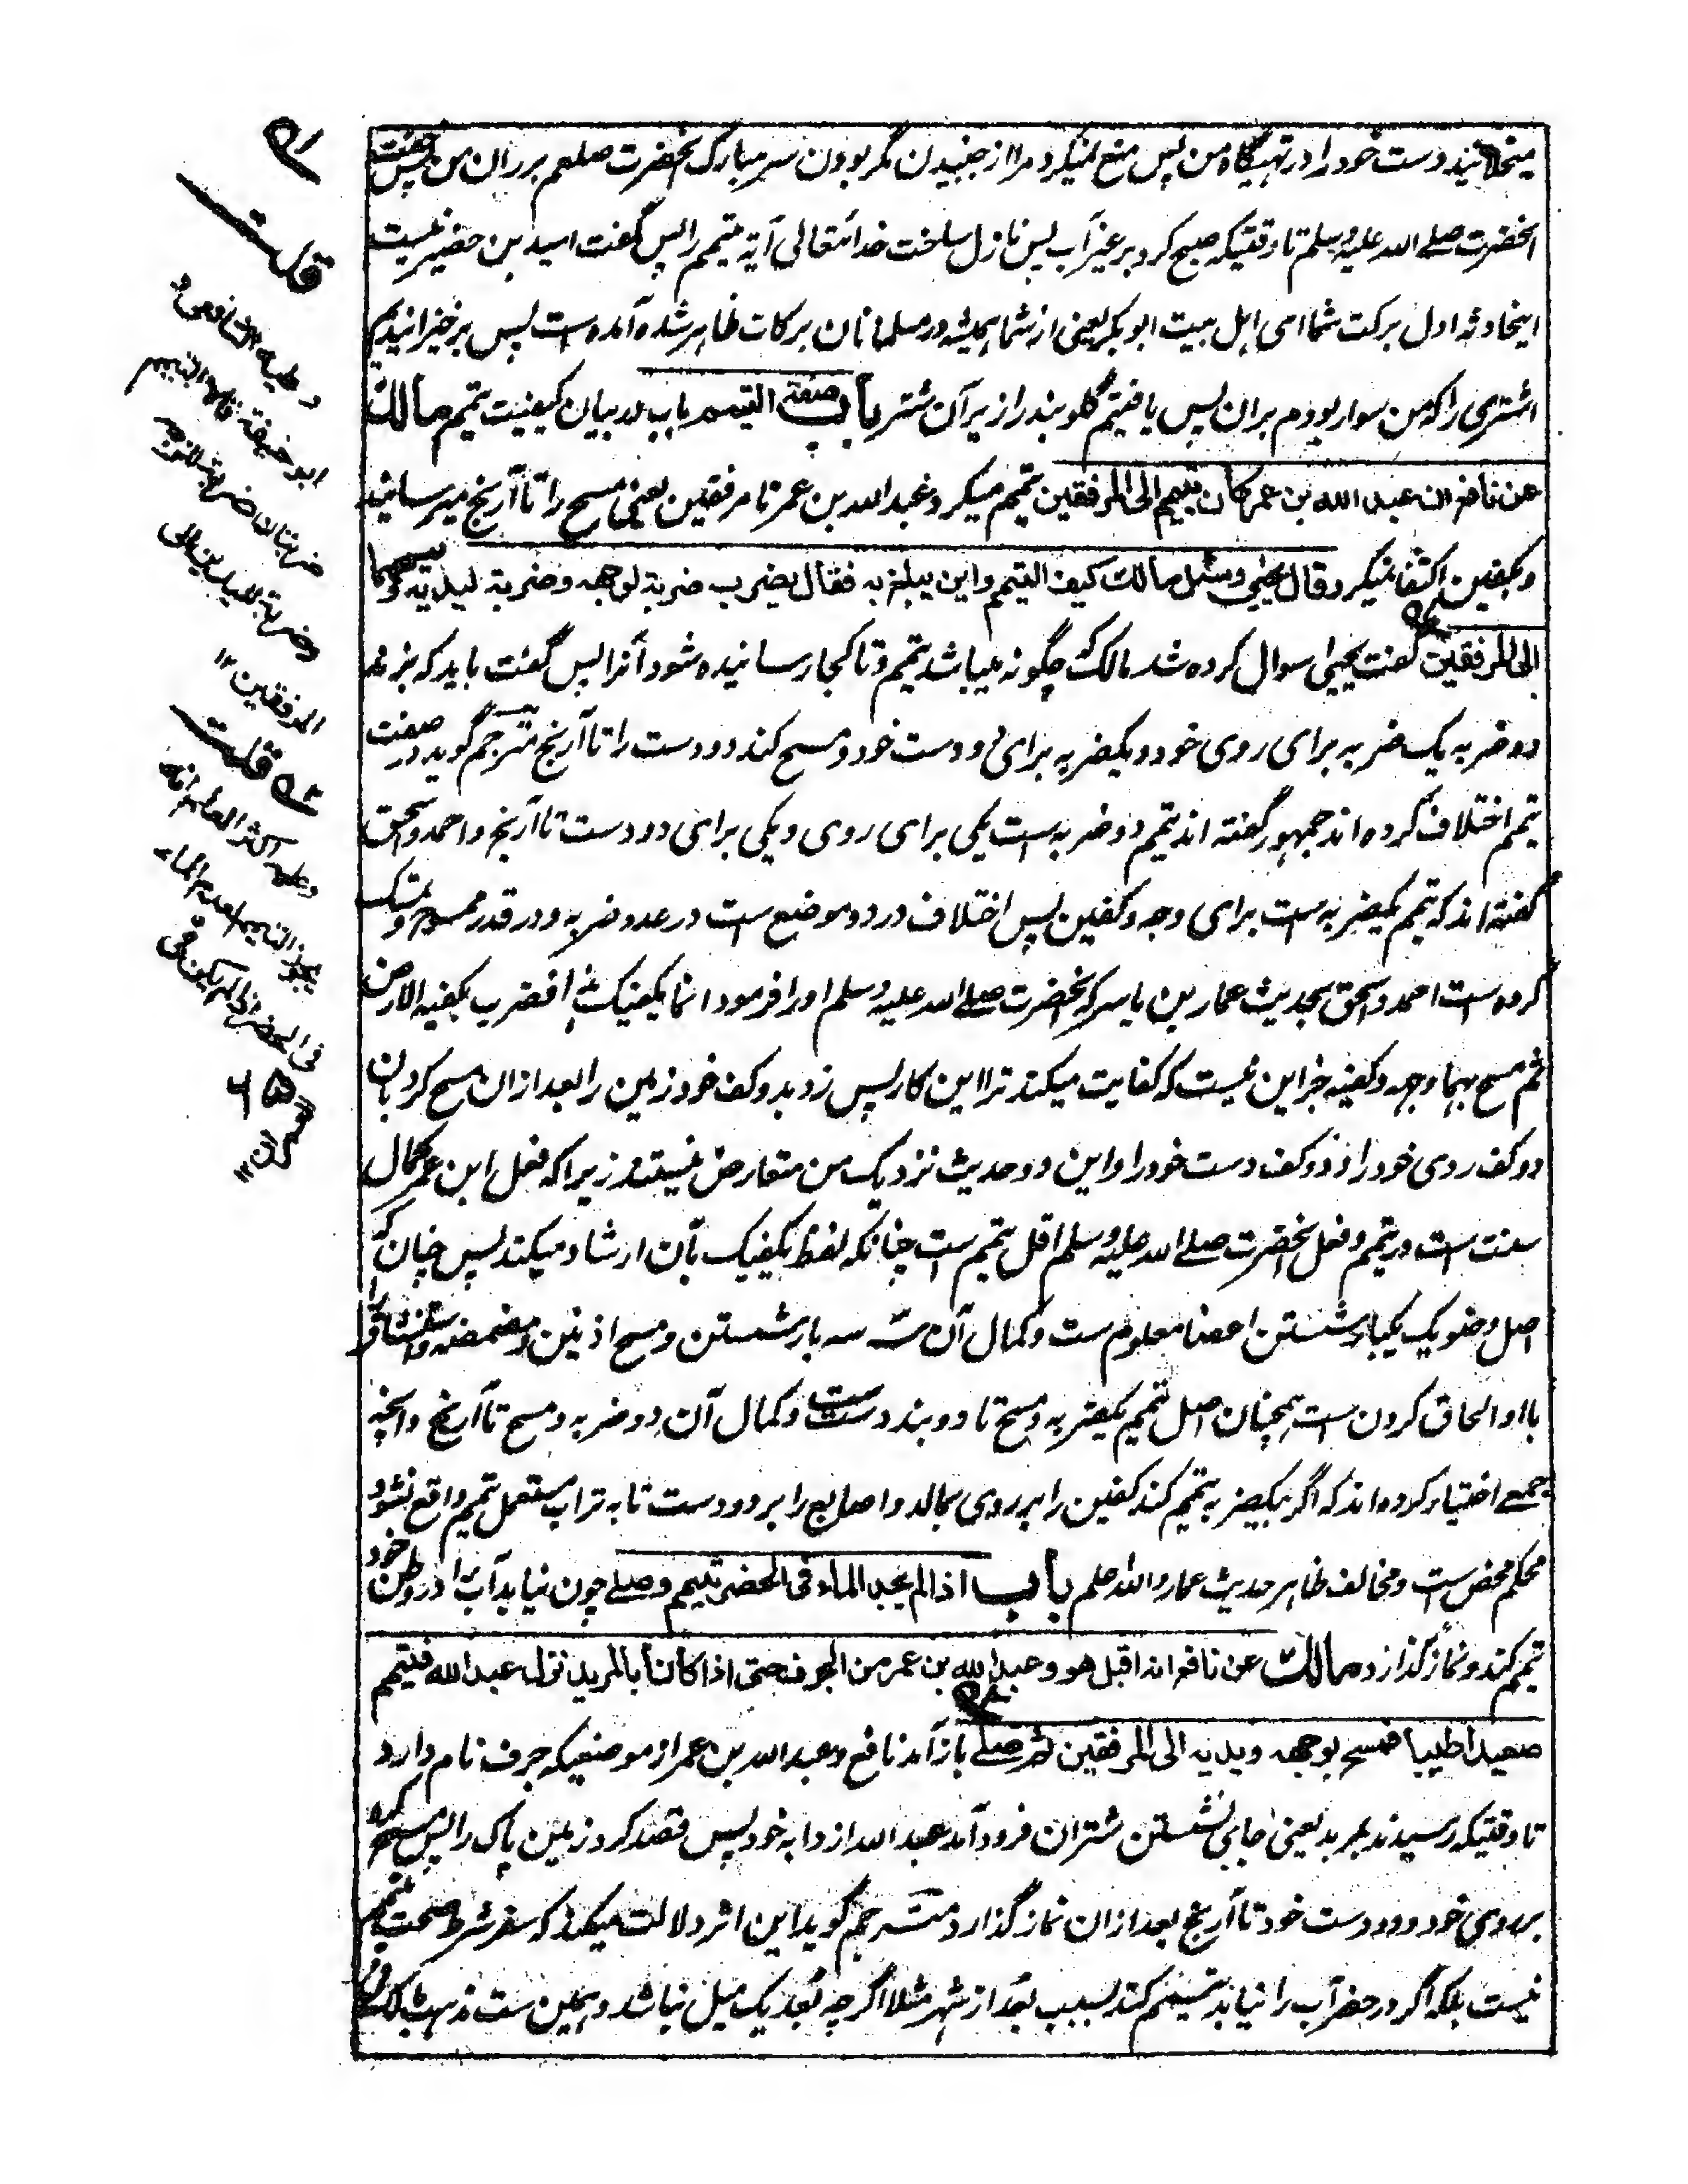 میخلانید دست خود را در تهیگاه من پس منع نمیکرد مرا از جنبیدن مگر بودن سر مبارک آنحضرت صلعم بر ران من پس خفت
آنحضرت صلے اللہ علیہ وسلم تا وقتیکہ صبح کرد بر غیر آب پس نازل ساخت خدا تعالی آیہ تیمم را پس گفت اسید بن حضیر نیست
اینحادثہ اول برکت شما ای اہل بیت ابوبکر یعنی از شما ہمیشہ در مسلمانان برکات ظاہر شدہ آمدہ ست پس بر خیزانیدیم
اشتری را کہ من سوار بودم بران پس یافتیم گلوبند را زیر آن شتر باب صفۃ التیمم باب در بیان کیفیت تیمم مالك
عن نافع ان عبد الله بن عمر كان يتيمم الى المرفقين تیمم میکرد عبد اللہ بن عمر تا مرفقین یعنی مسح را تا آرنج میرسانید
و بکفین اکتفا نمیکرد قال یحیی وسئل مالك كيف التيمم واين يبلغ به فقال يضرب ضربة لوجهه وضربة ليديه ويمسحهما
الى المرفقين گفت یحیی سوال کردہ شد مالک چگونہ میباشد تیمم و تا کجا رسانیدہ شود آنرا پس گفت باید کہ بزند
دو ضربہ یک ضربہ برای روی خود و یکضربہ برای دو دست خود و مسح کند دو دست را تا آرنج مترجم گوید در صفت
تیمم اختلاف کردہ اند جمہور گفتہ اند تیمم دو ضربہ ست یکی برای روی و یکی برای دو دست تا آرنج و احمد و اسحق
گفتہ اند کہ تیمم یکضربہ ست برای وجہ و کفین پس اختلاف در دو موضع ست در عدد ضربہ و در قدر ممسوح و تمسک
کردہ ست احمد و اسحق بحدیث عمار بن یاسر کہ آنحضرت صلے اللہ علیہ وسلم او را فرمود انما یکفیک ہذا فضرب بکفیہ الارض
ثم مسح بہما وجہہ وکفیہ جز این نیست کہ کفایت میکند ترا این کار پس زد بدو کف خود زمین را بعد ازان مسح کرد بآن
دو کف روی خود را و دو کف دست خود را و این دو حدیث نزدیک من متعارض نیستند زیرا کہ فعل ابن عمر کمال
سنت ست در تیمم و فعل آنحضرت صلے اللہ علیہ وسلم اقل تیمم ست چنانکہ لفظ یکفیک بآن ارشاد میکند پس چنان کہ
اصل وضو یک یکبار شستن اعضا معلوم ست و کمال آن سہ سہ بار شستن و مسح اذنین و مضمضہ و استنشاق را
باو الحاق کردن ست ہمچنان اصل تیمم یکضربہ و مسح تا دو بند دست ست و کمال آن دو ضربہ و مسح تا آرنج و آنچہ
جمعے اختیار کردہ اند کہ اگر بیکضربہ تیمم کند کفین را بر روی بمالد و اصابع را بر دو دست تا بہ تراب مستعمل تیمم واقع نشود
تحکم محض ست و مخالف ظاہر حدیث عمار واللہ اعلم باب اذا لم يجد الماء فى الحضر تيمم وصلے چون نیابد آب را در وطن خود
تیمم کند و نماز گذارد مالك عن نافع انه اقبل هو وعبد الله بن عمر من الجرف حتى اذا كانا بالمربد نزل عبد الله فتيمم
صعيدا طيبا فمسح بوجهه ويديه الى المرفقين ثم صلے باز آمد نافع و عبد اللہ بن عمر از موضعیکہ جرف نام دارد
تا وقتیکہ رسیدند بمربد یعنی جای نشستن شتران فرود آمد عبد اللہ از دابہ خود پس قصد کرد زمین پاک را پس مسح کرد
بر روی خود و دو دست خود تا آرنج بعد ازان نماز گذارد مترجم گوید این اثر دلالت میکند کہ سفر شرط صحت تیمم
نیست بلکہ اگر در حضر آب را نیابد تیمم کند بسبب بعد از شہر مثلا اگرچہ بعد یک میل نباشد و ہمین ست مذہب مالک
قلت
وعليه الشافعى و
ابو حنيفة قالا التيمم
ضربتان ضربة للوجه
وضربة لليدين الى
المرفقين ۱۲
قلت
وعليه اكثر العلماء انه
يجوز التيمم لعدم الماء
فى الحضر